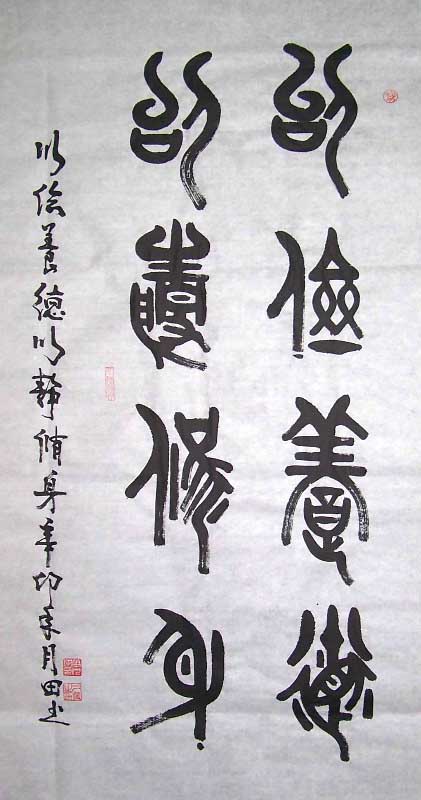 以儉養德
以靜修身
以俭養德以静脩身辛卯年月田书